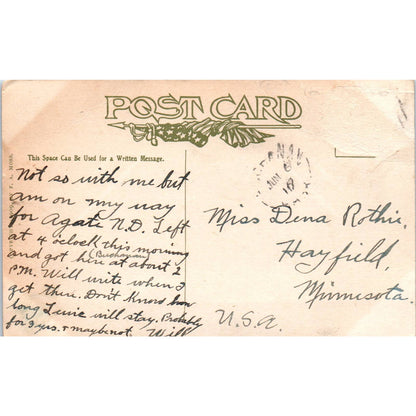 POST CARD
This Space Can Be Used for a Written Message.
Not so with me but
am on my way
for Agate N.D. Left
at 4 o'clock this morning
(Buchanan)
and got him at about 2
P.M. Will write when I
get there. Don't Know how
long Lucie will stay. Probably
for 3 yrs. & maybe not. Will
Miss Dena Rothie,
Hayfield,
Minnesota.
U.S.A.